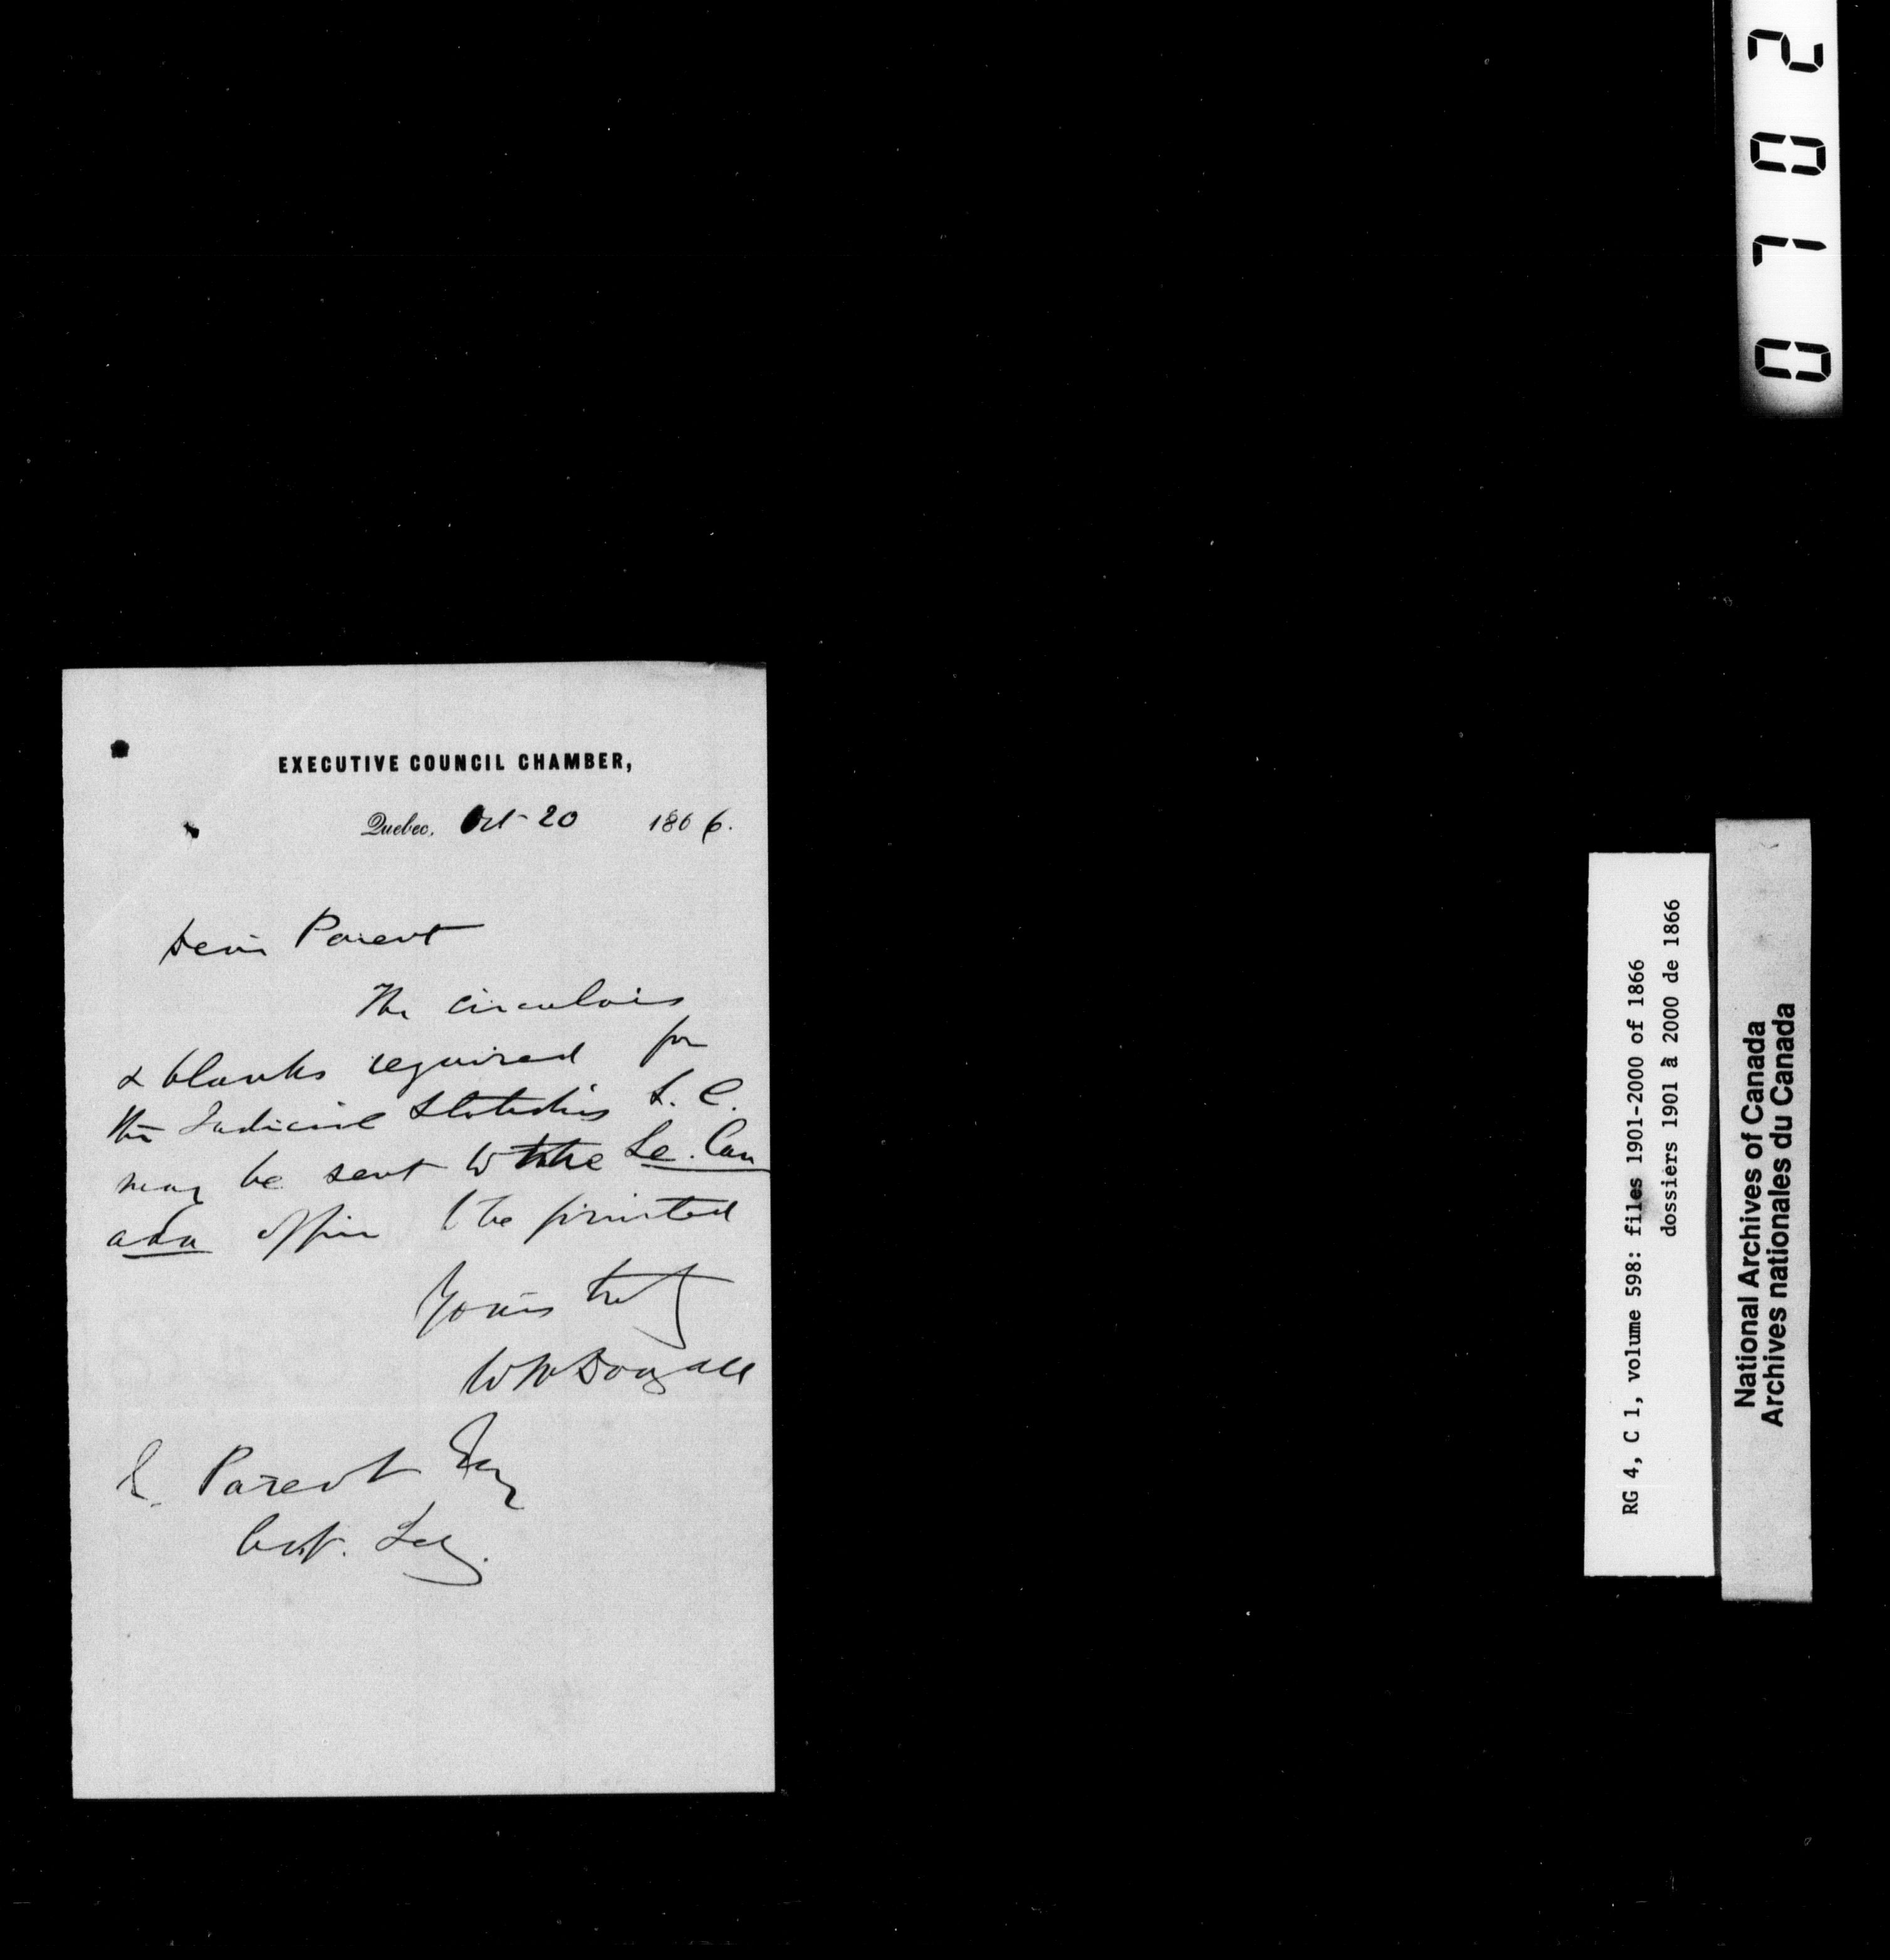 EXECUTIVE COUNCIL CHAMBER,
Quebec, Oct 20 1866.
Dear Parent
The circulars
& blanks required for
the Judicial Statistics L. C.
may be sent to the Le. Can
ada office to be printed
Yours truly
W McDougall
E. Parent Esq
Asst. Secy.
2010
RG 4, C 1, volume 598: files 1901-2000 of 1866
dossiers 1901 à 2000 de 1866
National Archives of Canada
Archives nationales du Canada